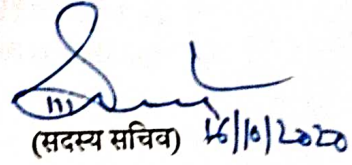 (सदस्य सचिव) 16/10/2020